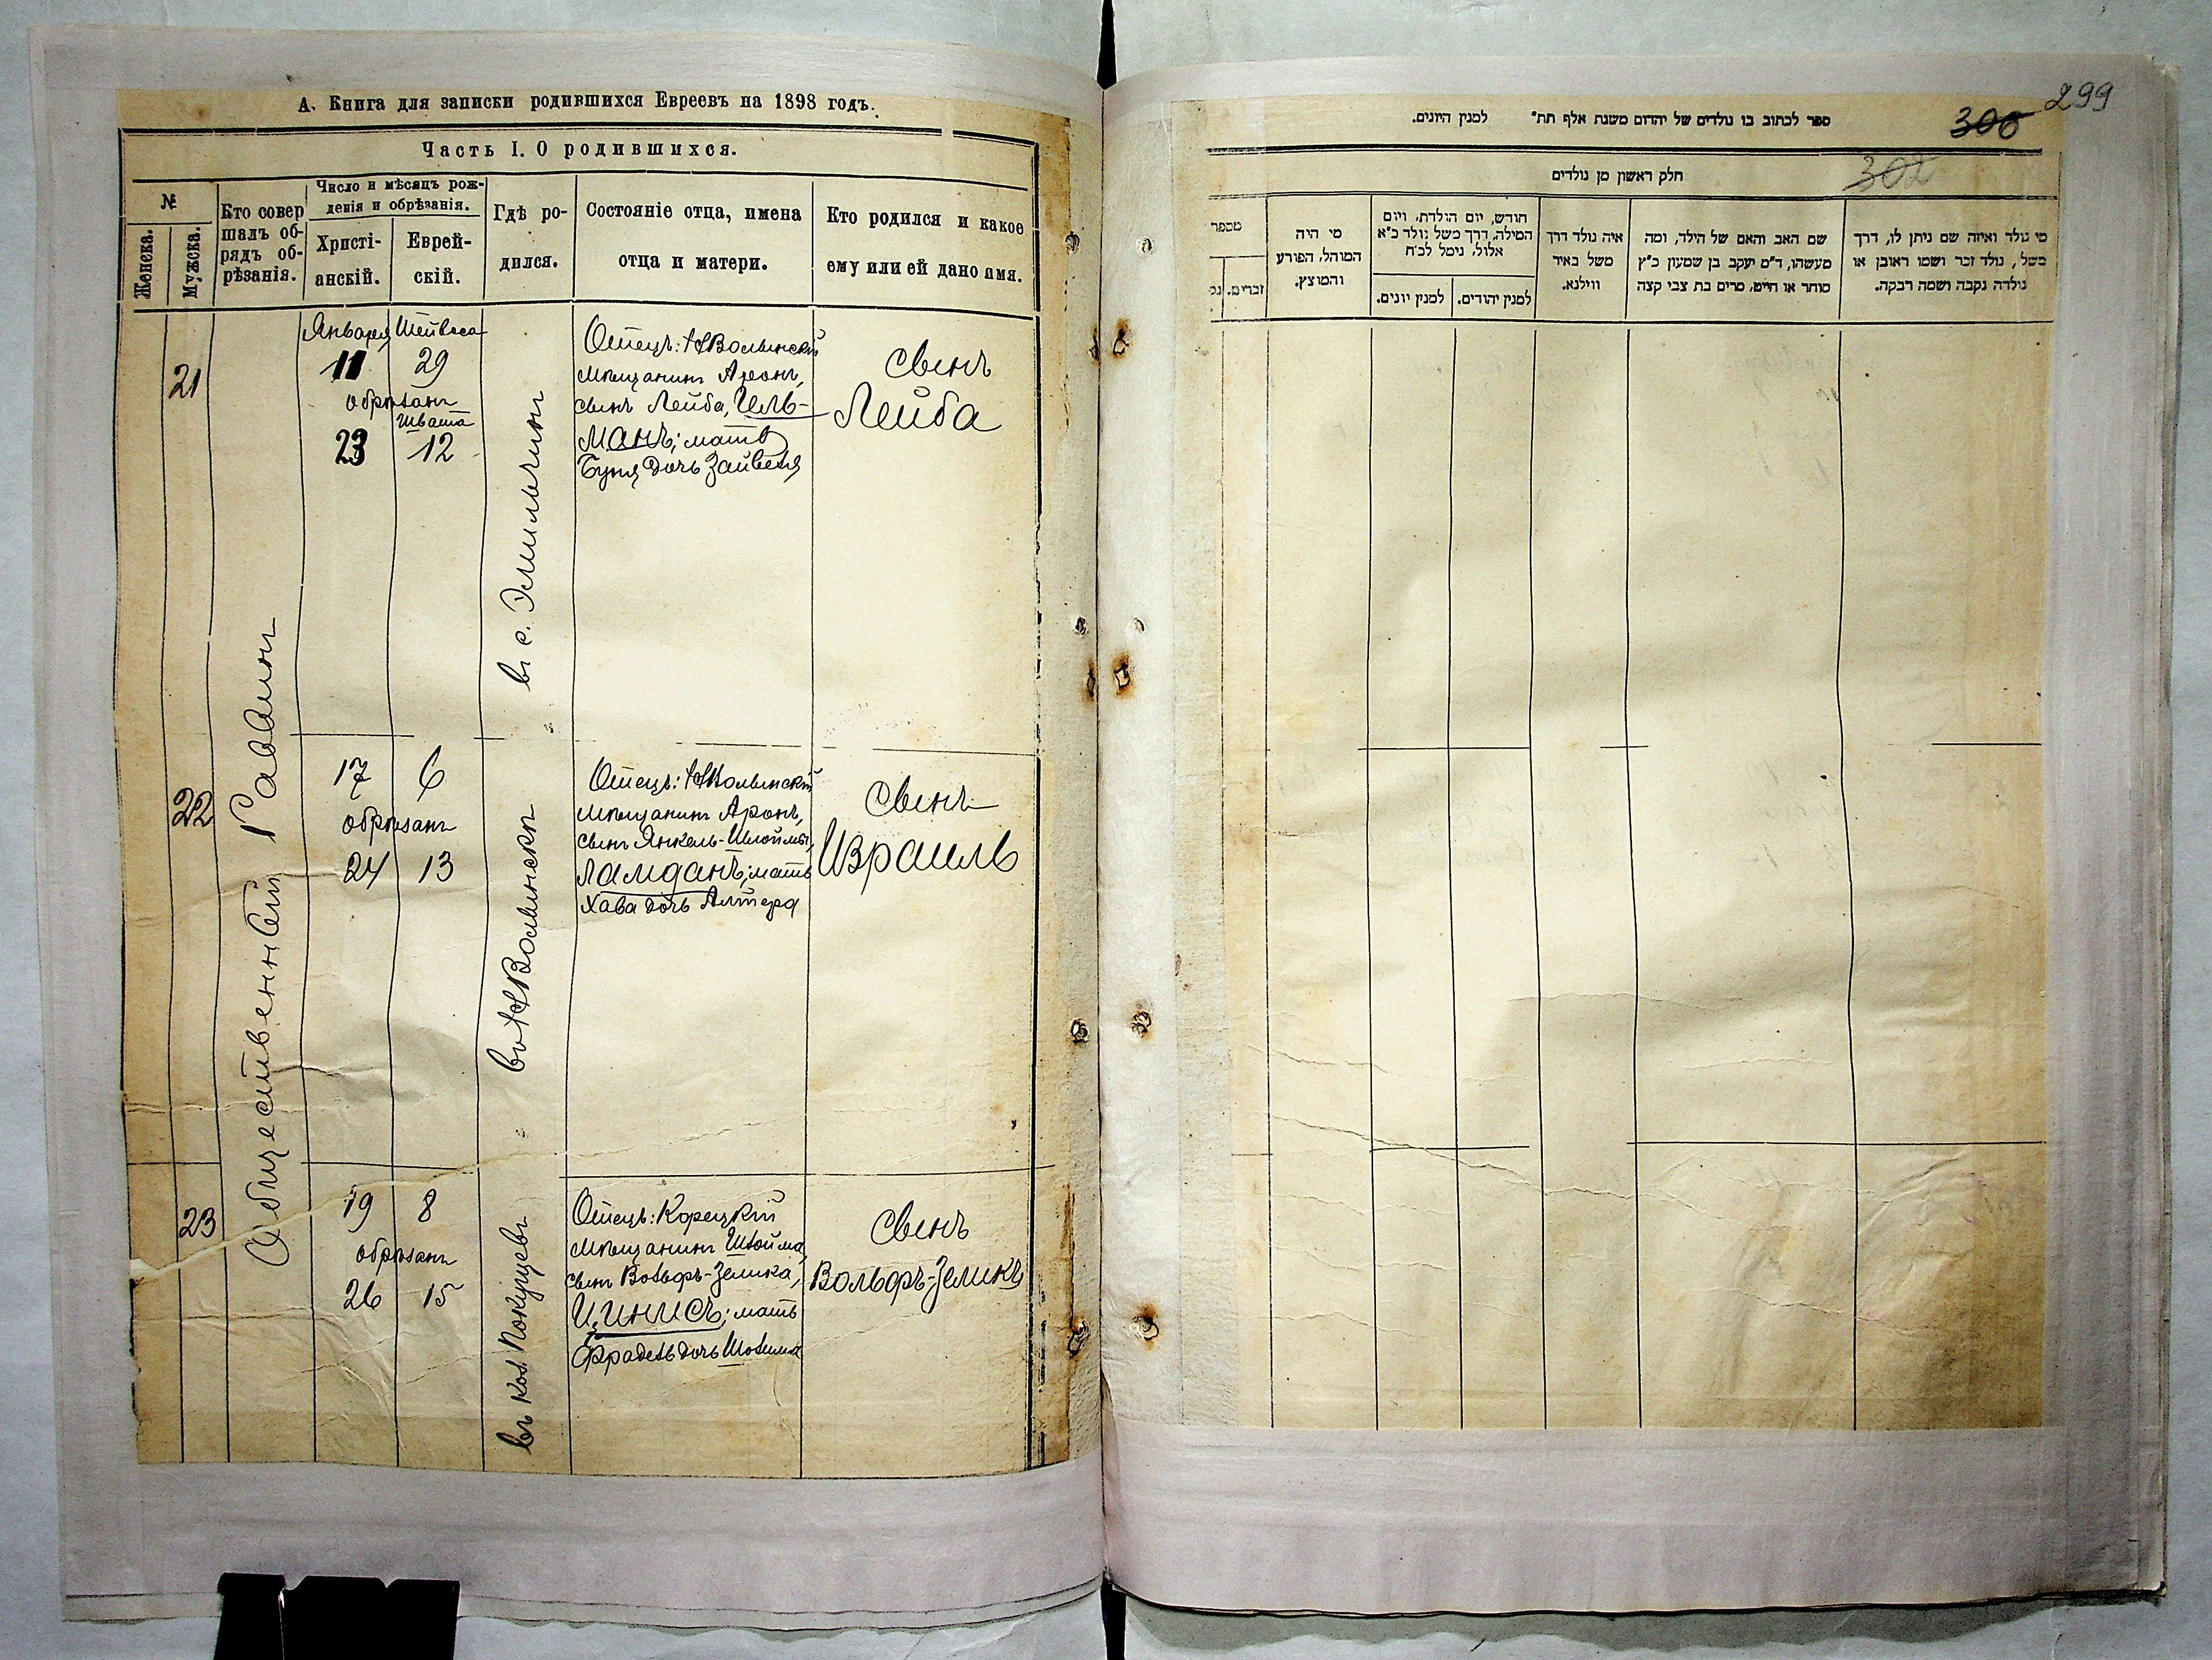 А. Книга для записки родившихся Евреевъ на 1898 годъ.
Часть I. О родившихся.
№
Женска.
Мужска.
Кто совер
шалъ об-
рядъ об-
рѣзанія.
Число и мѣсяцъ рож-
денія и обрѣзанія.
Христі-
анскій.
Еврей-
скій.
Гдѣ ро-
дился.
Состояніе отца, имена
отца и матери.
Кто родился и какое
ему или ей дано имя.
Общественный Раввинъ
21
Января
11
29
обрѣзанъ
Швата
23 12
въ с. Эмильчинѣ
Отецъ: НВолынскій
мѣщанинъ Аронъ,
сынъ Лейба,
манъ; мать
Буня дочь Зайвеля
сынъ
Лейба
22
17 6
обрѣзанъ
24 13
НВолынскѣ
Отецъ: НВолынскій
мѣщанинъ Аронъ,
сынъ Янкель-Шлоймы,
Ламданъ; мать
Хава дочь Алтера
сынъ
Израиль
23
19 8
обрѣзанъ
26 15
въ кол.
Отецъ: Корецкій
мѣщанинъ Шлойма,
сынъ Вольфъ-Зелика,
мать
Фрадель дочь
сынъ
Вольфъ-Зеликъ
299
306
302
ספר לכתוב בו נולדים של יהדום משנת אלף תת" למנין היונים.
חלק ראשון מן נולדים
מספר
זכרים.
מי היה
המוהל, הפורע
והמוצץ.
חודש, יום הולדת, ויום
המילה, דרך משל נולד כ"א
אלול, נימל לכ"ח
למנין יונים.
למנין יהודים.
איה נולד דרך
משל באיר
ווילנא.
שם האב והאם של הילד, ומה
מעשהו, ד"מ יעקב בן שמעון כ"ץ
סוחר או חייט, מרים בת צבי קצה
מי נולד ואיזה שם ניתן לו, דרך
משל, נולד זכר ושמו ראובן או
נולדה נקבה ושמה רבקה.